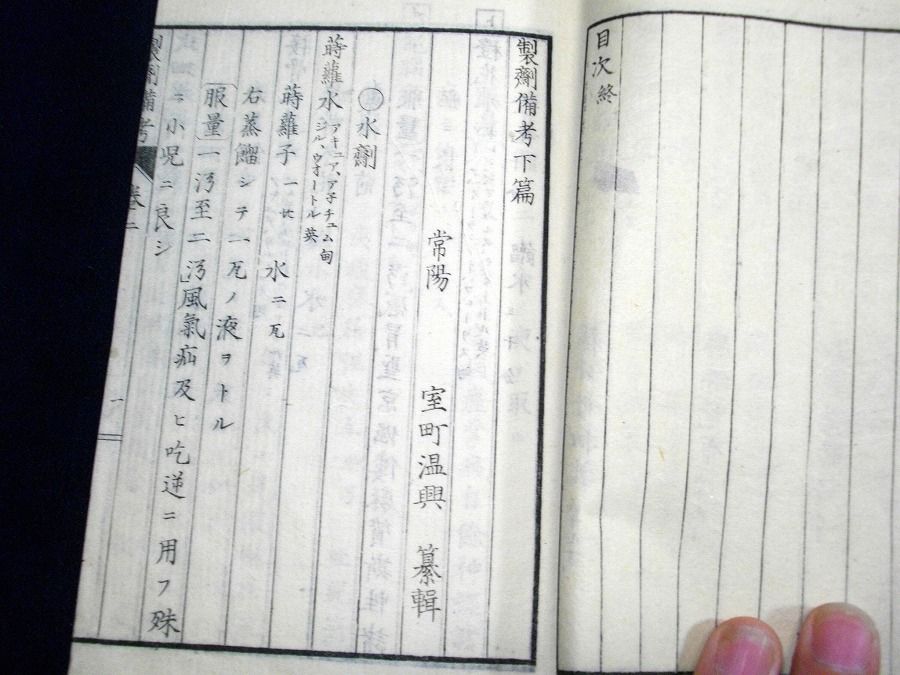 目次終
製劑備考下篇
常陽 室町温興 纂輯
○水劑
蒔蘿水 アキュア、ア子チユム甸 ジル、ウオートル英
蒔蘿子 水二瓦
右蒸餾シテ一瓦ノ液ヲトル
服量 一㕮至二㕮風氣疝及ヒ吃逆ニ用フ殊
ニ小呪ニ良シ
製劑備考 卷二 一